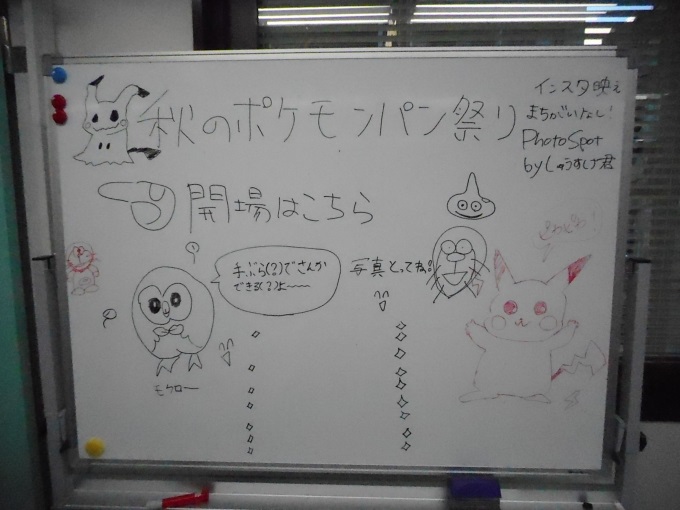 秋のポケモンパン祭り
インスタ映え
まちがいなし!
PhotoSpot
byしゅうすけ君
開場はこちら
手ぶら(?)でさんか
できる(?)よ~~
写真とってね!!
モクロー